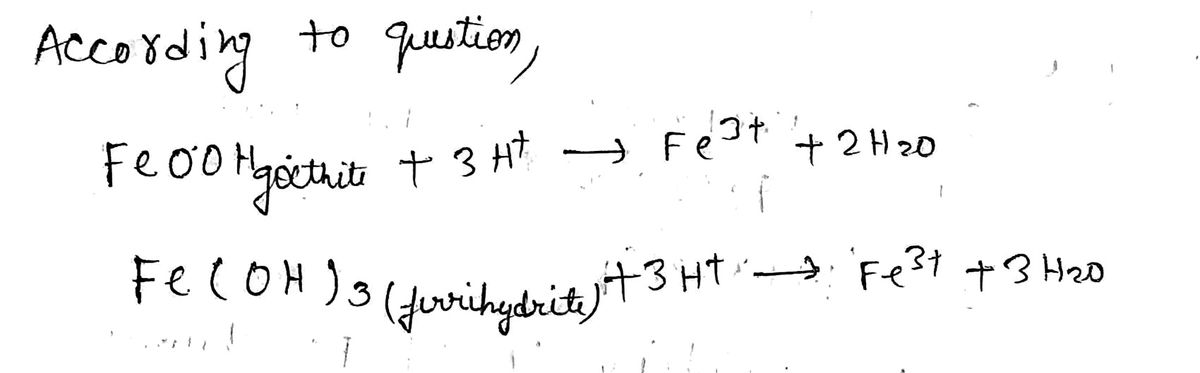 According to qustion,
FeOOHgoethite + 3 H+ → Fe3+ + 2 H2O
Fe(OH)3(ferrihydrite) + 3 H+ → Fe3+ + 3 H2O